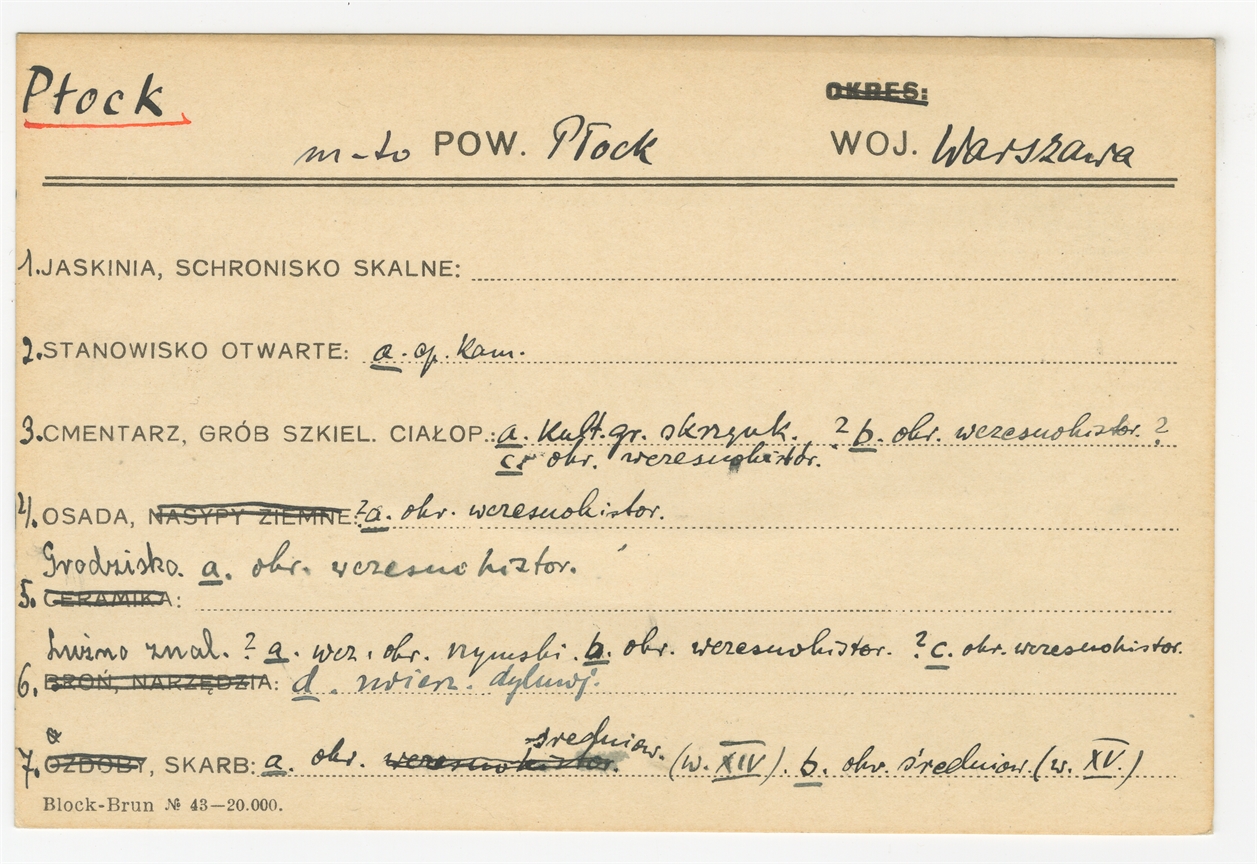 Płock
OKRES:
m-to POW. Płock WOJ. Warszawa
1. JASKINIA, SCHRONISKO SKALNE:
2. STANOWISKO OTWARTE: a. ep. kam.
3. CMENTARZ, GRÓB SZKIEL. CIAŁOP.: a. kult. gr. skrzynk. ? b. okr. wczesnohistor. ?
c. okr. wczesnohistor.
4. OSADA, NASYPY ZIEMNE: ? a. okr. wczesnohistor.
Grodzisko. a. okr. wczesnohistor.
5. CERAMIKA:
Luźno znal. ? a. wcz. okr. rzymski. b. okr. wczesnohistor. ? c. okr. wczesnohistor.
6. BROŃ, NARZĘDZIA: d. zwierz. dyluwj.
7. OZDOBY, SKARB: a. okr. wczesnohistor. średniow. (w. XIV). b. okr. średniow. (w. XV.)
Block-Brun № 43—20.000.